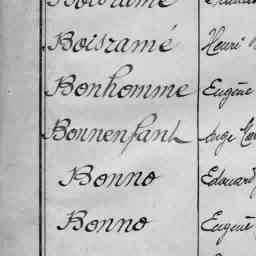 Boisramé Henri
Bonhomme Eugène
Bonnenfant Ange
Bonno Edouard
Bonno Eugène